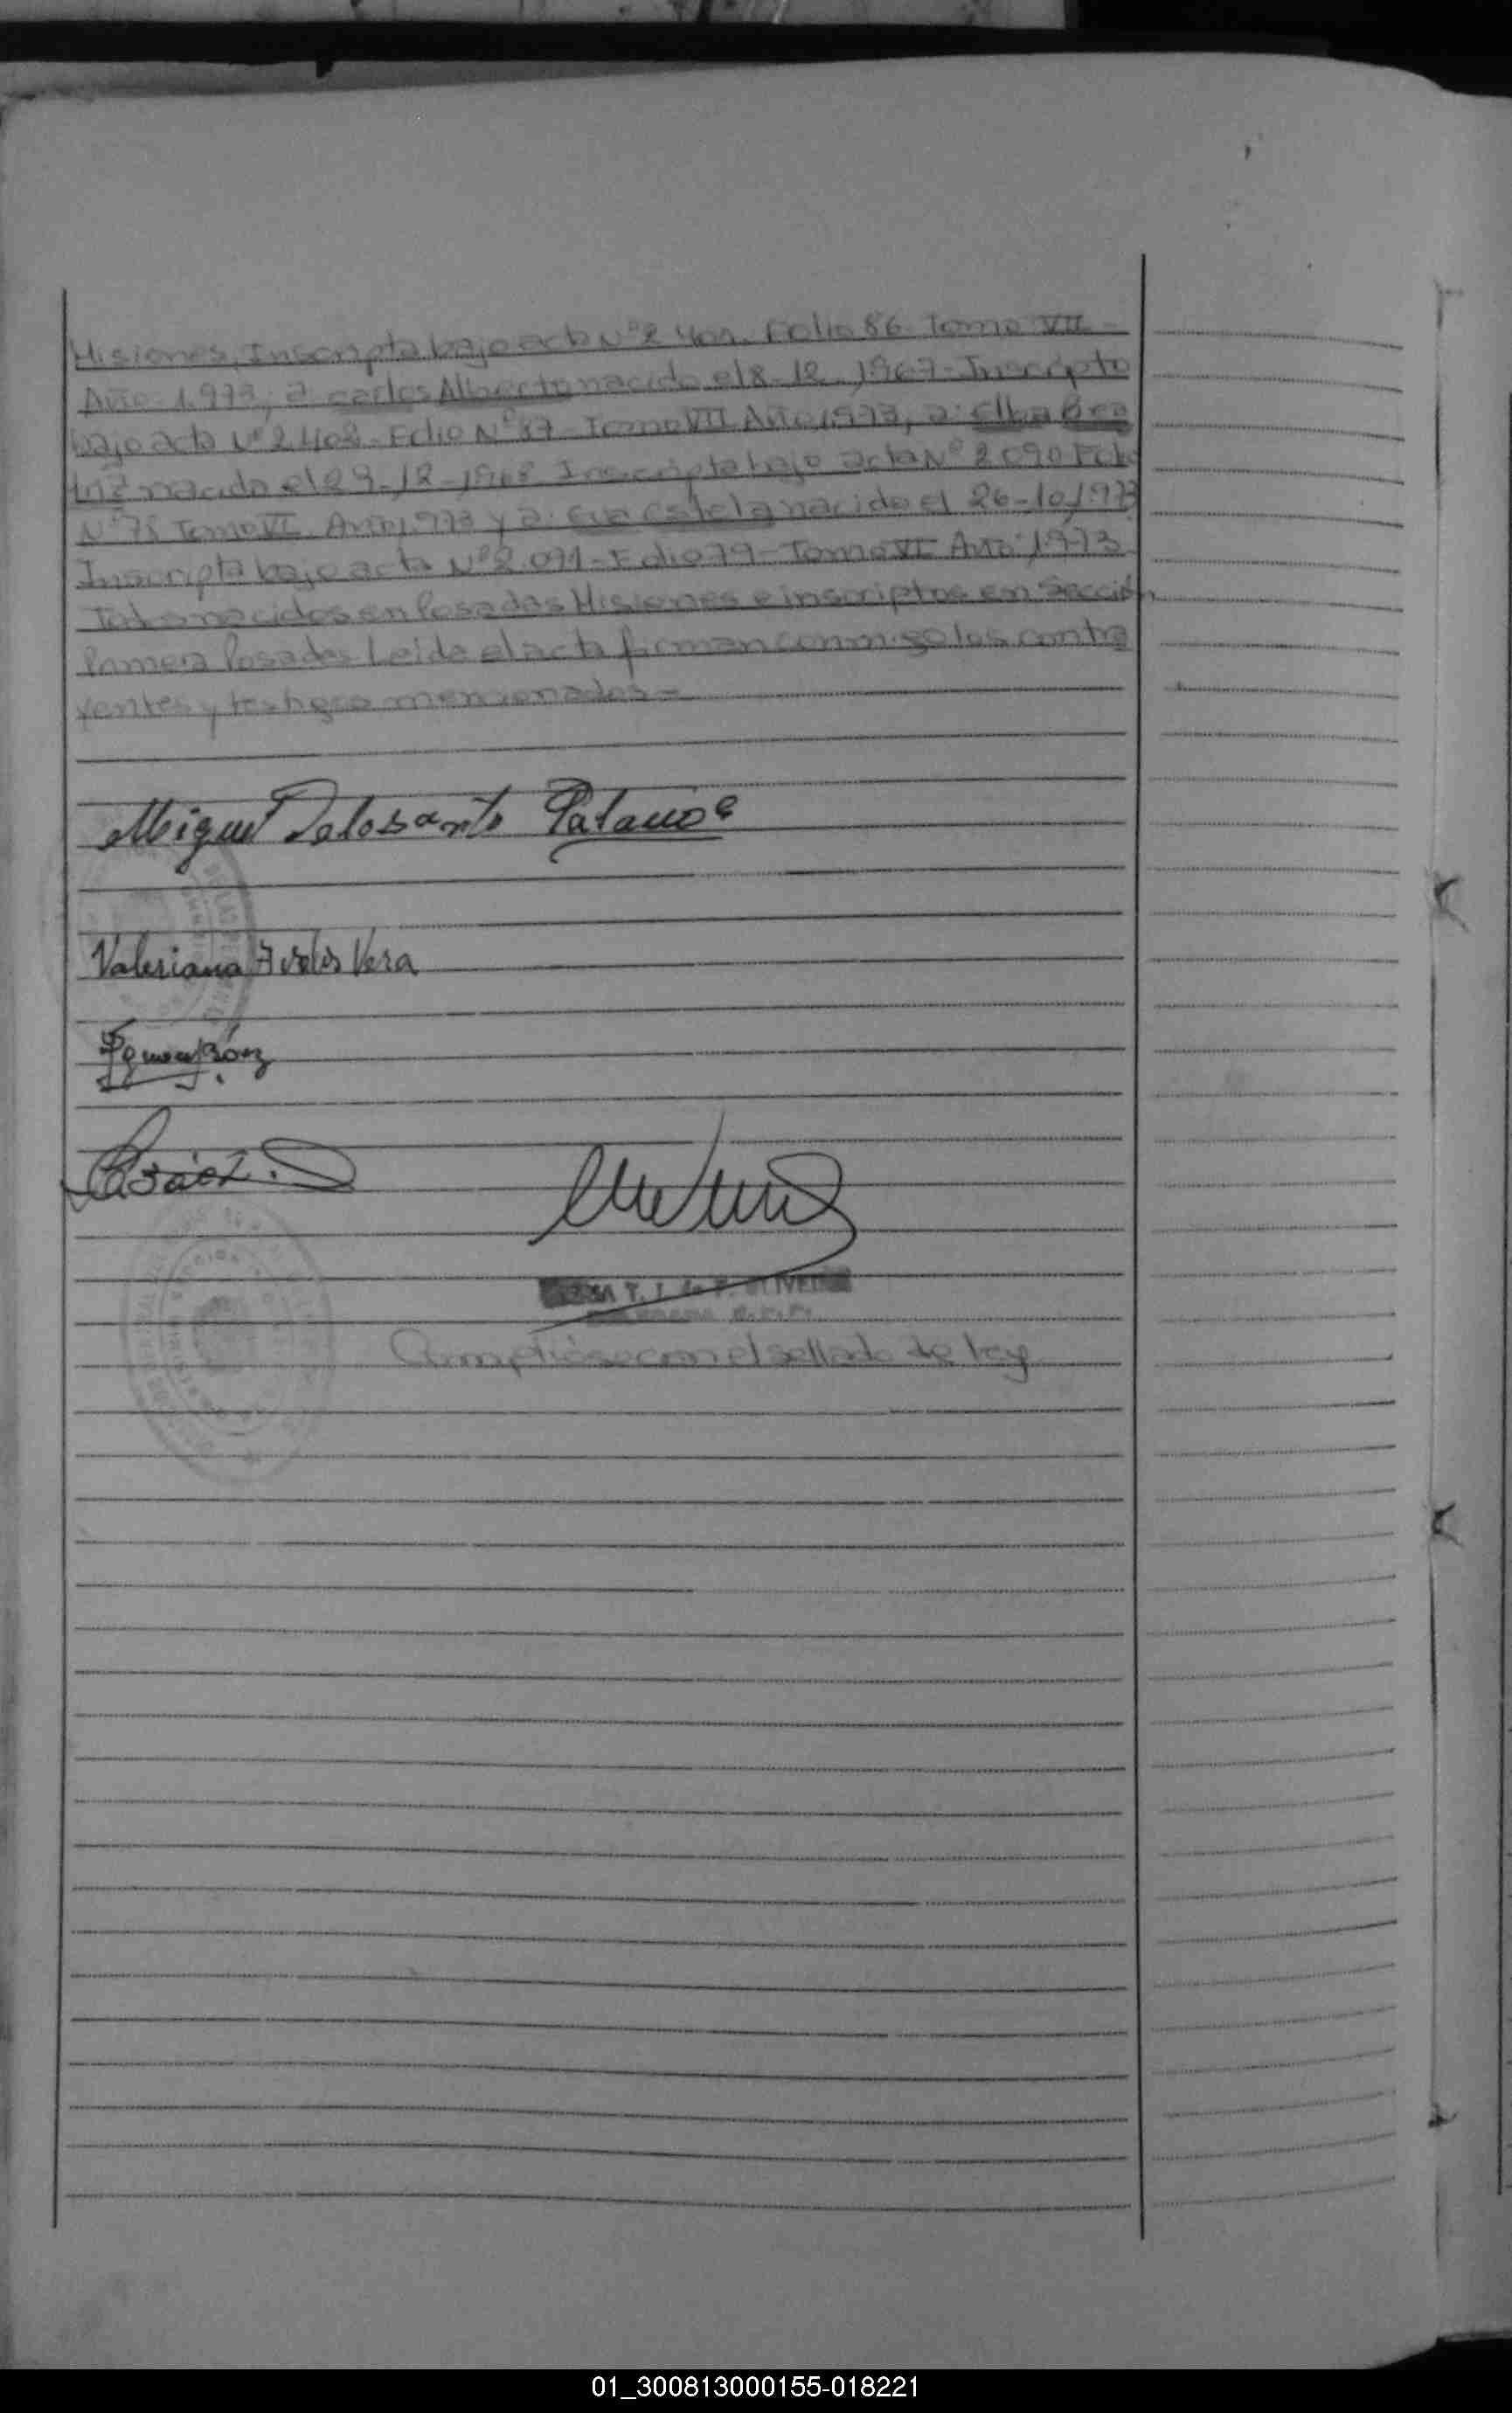 Misiones, Inscripta bajo acta Nº 2401. Folio 86 Tomo VII -
Año 1.973; a carlos Alberto nacido el 8-12-1967- Inscripto
bajo acta Nº 2.402- Folio Nº 87- Tomo VII Año 1.973, a: Elba Bea
triz nacido el 29-12-1968 Inscripta bajo acta Nº 2.090 Folio
Nº 78 Tomo VI Año 1.973 y a: Eva Estela nacido el 26-10-1973
Inscripta bajo acta Nº 2.091- Folio 79- Tomo VI Año: 1973.
Todo nacidos en Posadas Misiones e inscriptos en Sección
Primera Posadas Leida el acta firman conmigo los contra
yentes y testigos mencionados-
Miguel Delosanto Palacio
Valeriana Vera
Báez
T. J. de
Cumplióse con el sellado de ley
01_300813000155-018221